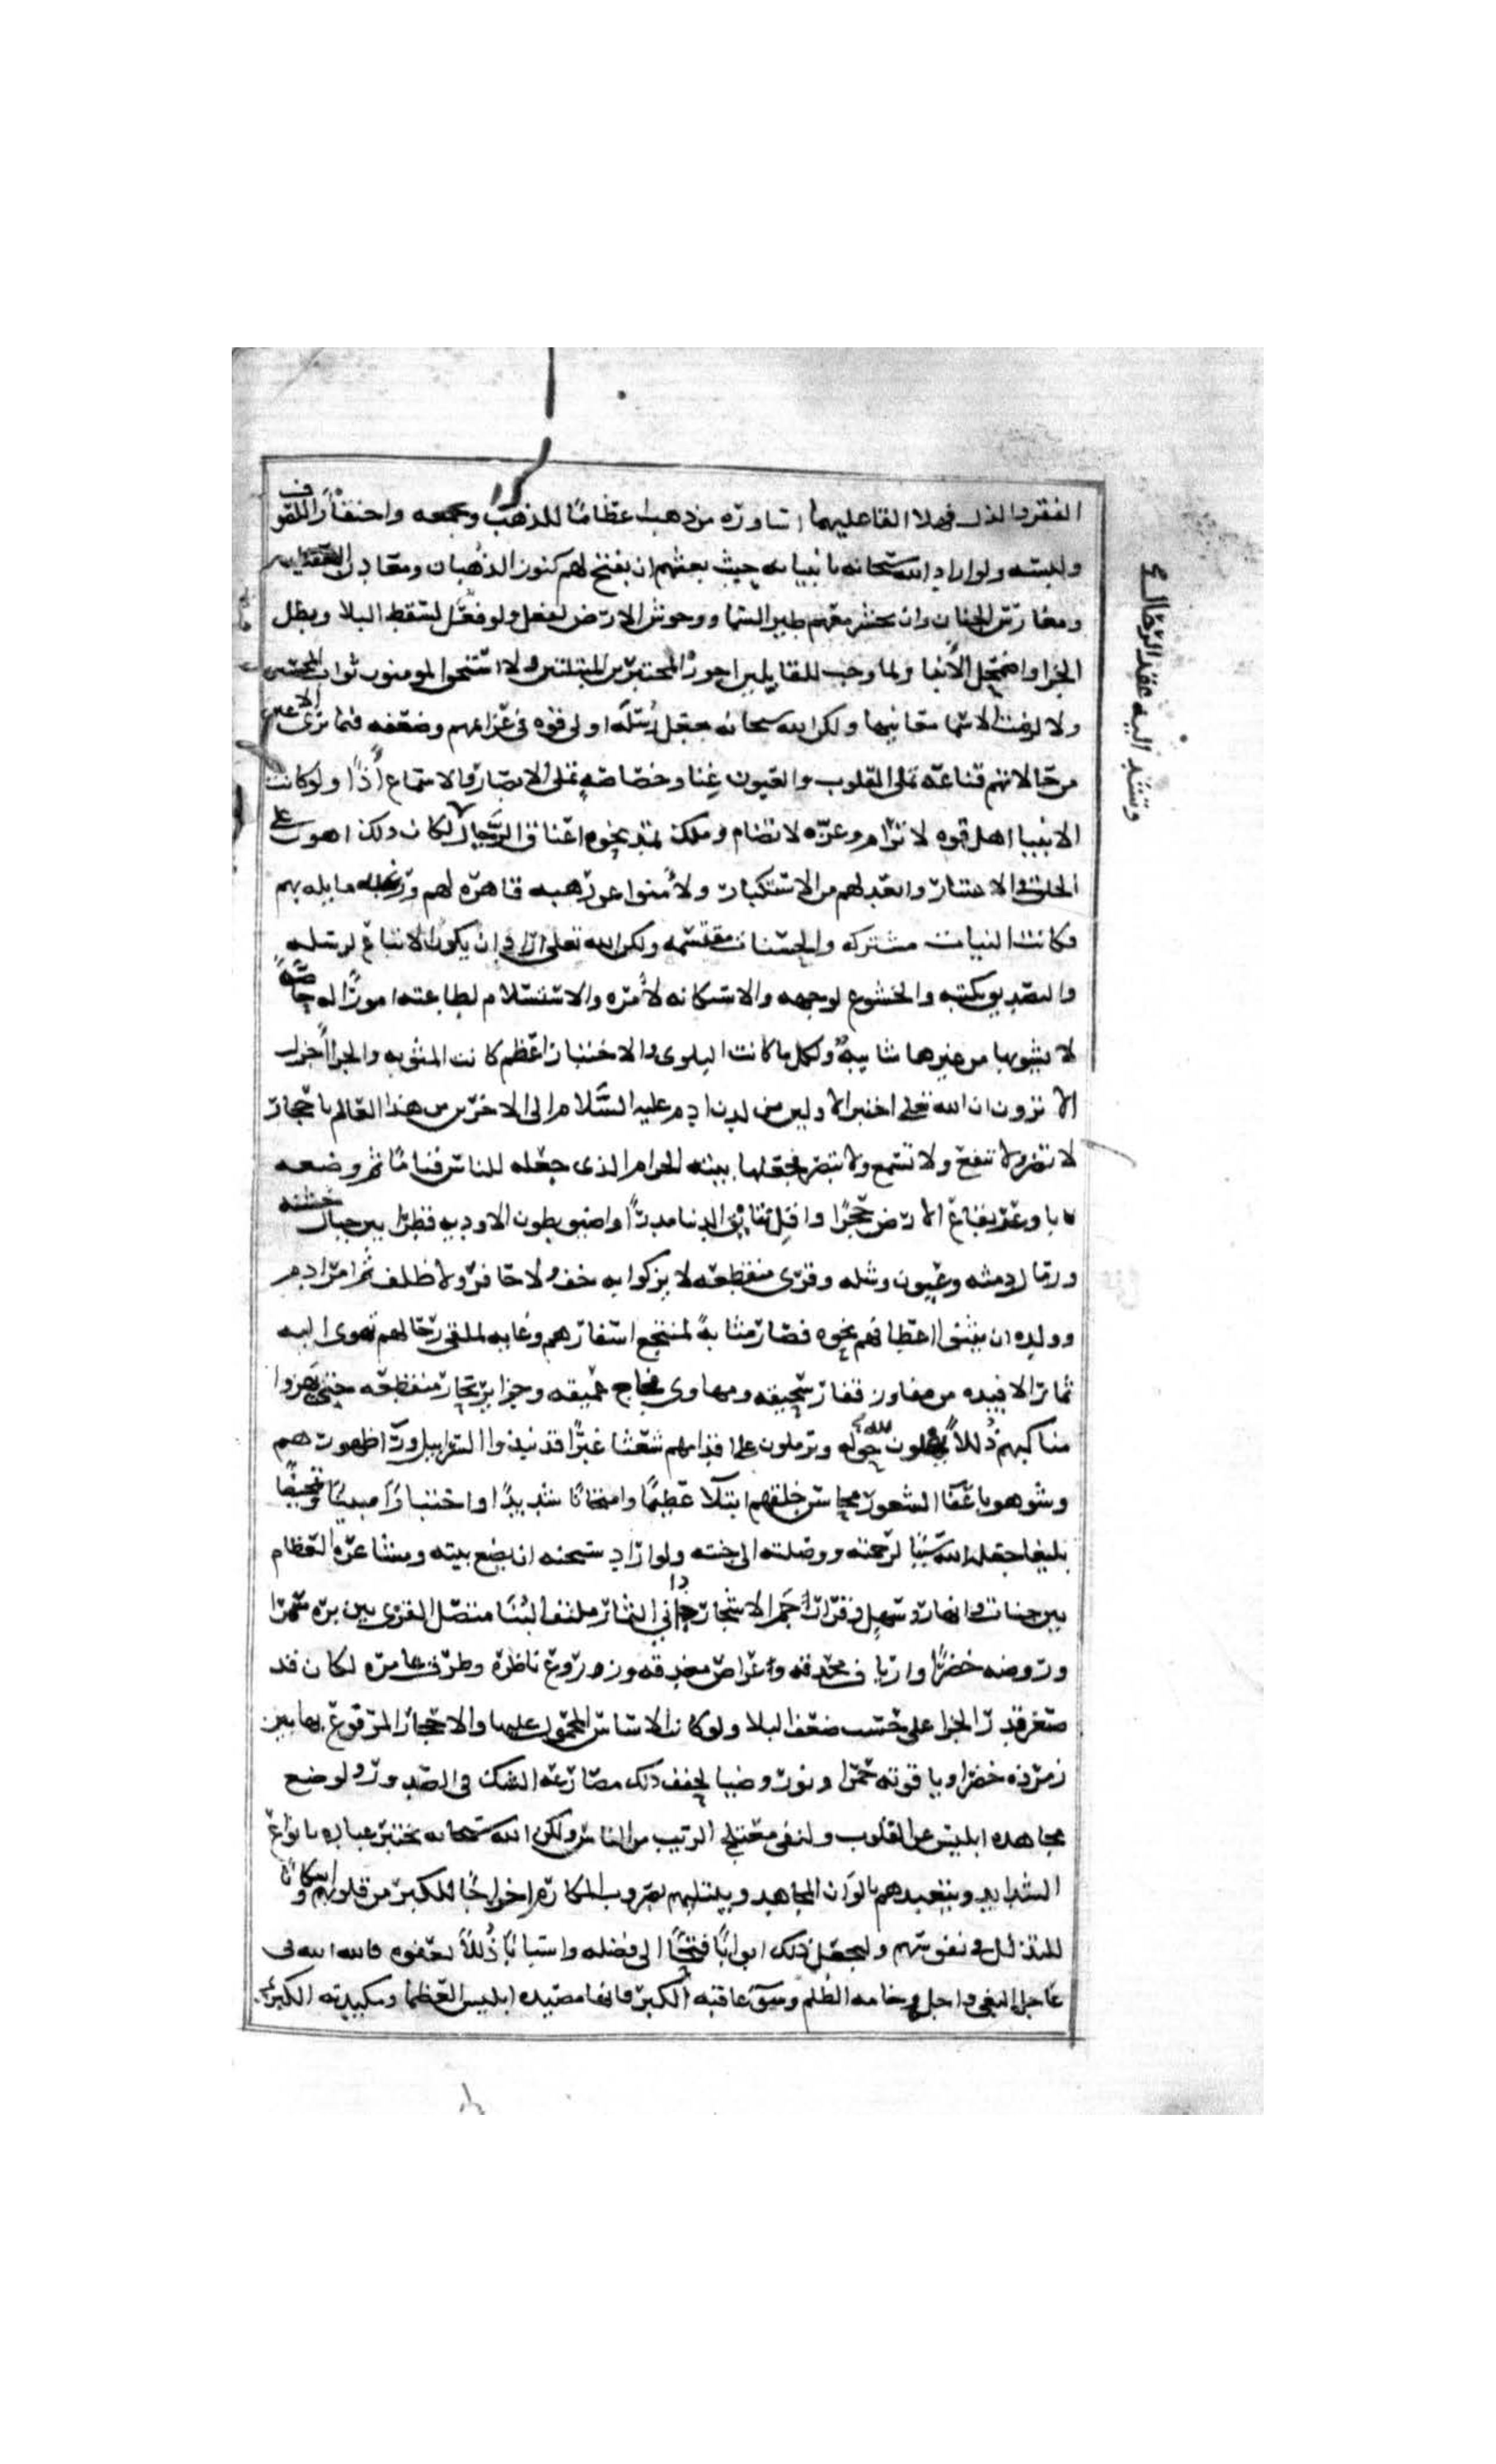 الفقر والذل فهلا القا عليهما اساورة من ذهب اعظاما للذهب وجمعه واحتقارا للصوف
ولبسه ولو اراد الله سبحانه بانبيائه حيث بعثهم ان يفتح لهم كنوز الذهبان ومعادن العقيان
ومغارس الجنان وان يحشر معهم طير السما ووحوش الارض لفعل ولو فعل لسقط البلا وبطل
الجزا واضمحل الانبا ولما وجب للقابلين اجور المبتلين ولا استحق المومنون ثواب المحسنين
ولا لزمت الاسما معانيها ولكن الله سبحانه جعل رسله اولى قوه في عزايمهم وضعفه فيما ترى الاعين
من حالاتهم مع قناعه تملى القلوب والعيون غنا وخصاصه تملى الابصار والاسماع أذا ولو كانت
الانبيا اهل قوه لا ترام وعزه لا تضام وملك تمتد نحوه اعناق الرجال لكان ذلك اهون على
الخلق في الاعتبار وابعد لهم من الاستكبار ولأمنوا عن رهبه قاهره لهم ورغبه مايله بهم
فكانت النيات مشتركه والحسنات مقتسمه ولكن الله تعلى اراد ان يكون الاتباع لرسله
والتصديق بكتبه والخشوع لوجهه والاستكانه لأمره والاستسلام لطاعته امورا له خاصة
لا يشوبها من غيرها شايبه ولكل ما كانت البلوى والاختبار اعظم كانت المثوبه والجزا اجزل
الا ترون ان الله تعلى اختبر الاولين من لدن ادم عليه السلام الى الاخرين من هذا العالم باحجار
لا تضر ولا تنفع ولا تسمع ولا تبصر فجعلها بيته الحرام الذي جعله للناس قياما ثم وضعه
باوعر بقاع الارض حجرا واقل نتايق الدنيا مدرا واضيق بطون الاوديه قطرا بين جبال خشنه
ورمال دمثه وعيون وشله وقرى منقطعه لا يزكوا به خف ولا حافر ولا ظلف ثم امر ادم
وولده ان يثنوا اعطافهم نحوه فصار مثابة لمنتجع اسفارهم وغايه لملقى رحالهم تهوى اليه
ثمار الافيده من مفاوز قفار سحيقه ومهاوى فجاج عميقه وجزاير بحار منقطعه حتى يهزوا
مناكبهم ذللا يهللون لله حوله ويرملون على اقدامهم شعثا غبرا قد نبذوا السرابيل ورا ظهورهم
وشوهوا باعفا الشعور محاسن خلقهم ابتلا عظيما وامتحانا شديدا واختبارا مبينا وتمحيصا
بليغا جعله الله سببا لرحمته ووصلته الى جنته ولو اراد سبحنه ان يضع بيته ومشاعره العظام
بين جنات وانهار وسهل وقرار جم الاشجار داني الثمار ملتف البنا متصل القرى بين بره سمرا
وروضه خضرا وارياف محدقه وعراص مغدقه وزروع ناظره وطرق عامره لكان قد
صغر قدر الجزا على حسب ضعف البلا ولو كان الاساس المحمول عليها والاحجار المرفوع بها بين
زمرذه خضرا وياقوته حمرا ونور وضيا لخفف ذلك مصارعه الشك في الصدور ولوضع
مجاهده ابليس عن القلوب ولنفى معتلج الريب من الناس ولكن الله سبحانه يختبر عباده بانواع
الشدايد ويتعبدهم بالوان المجاهد ويبتليهم بضروب المكاره اخراجا للكبر من قلوبهم واسكانا
للتذلل في نفوسهم وليجعل ذلك ابوابا فتحا الى فضله واسبابا ذللا لعفوه فالله الله في
عاجل البغي واجل وخامه الظلم وسو عاقبه الكبر فانها مصيده ابليس العظما ومكيدته الكبرى
وتشد اليه عقد الرحال